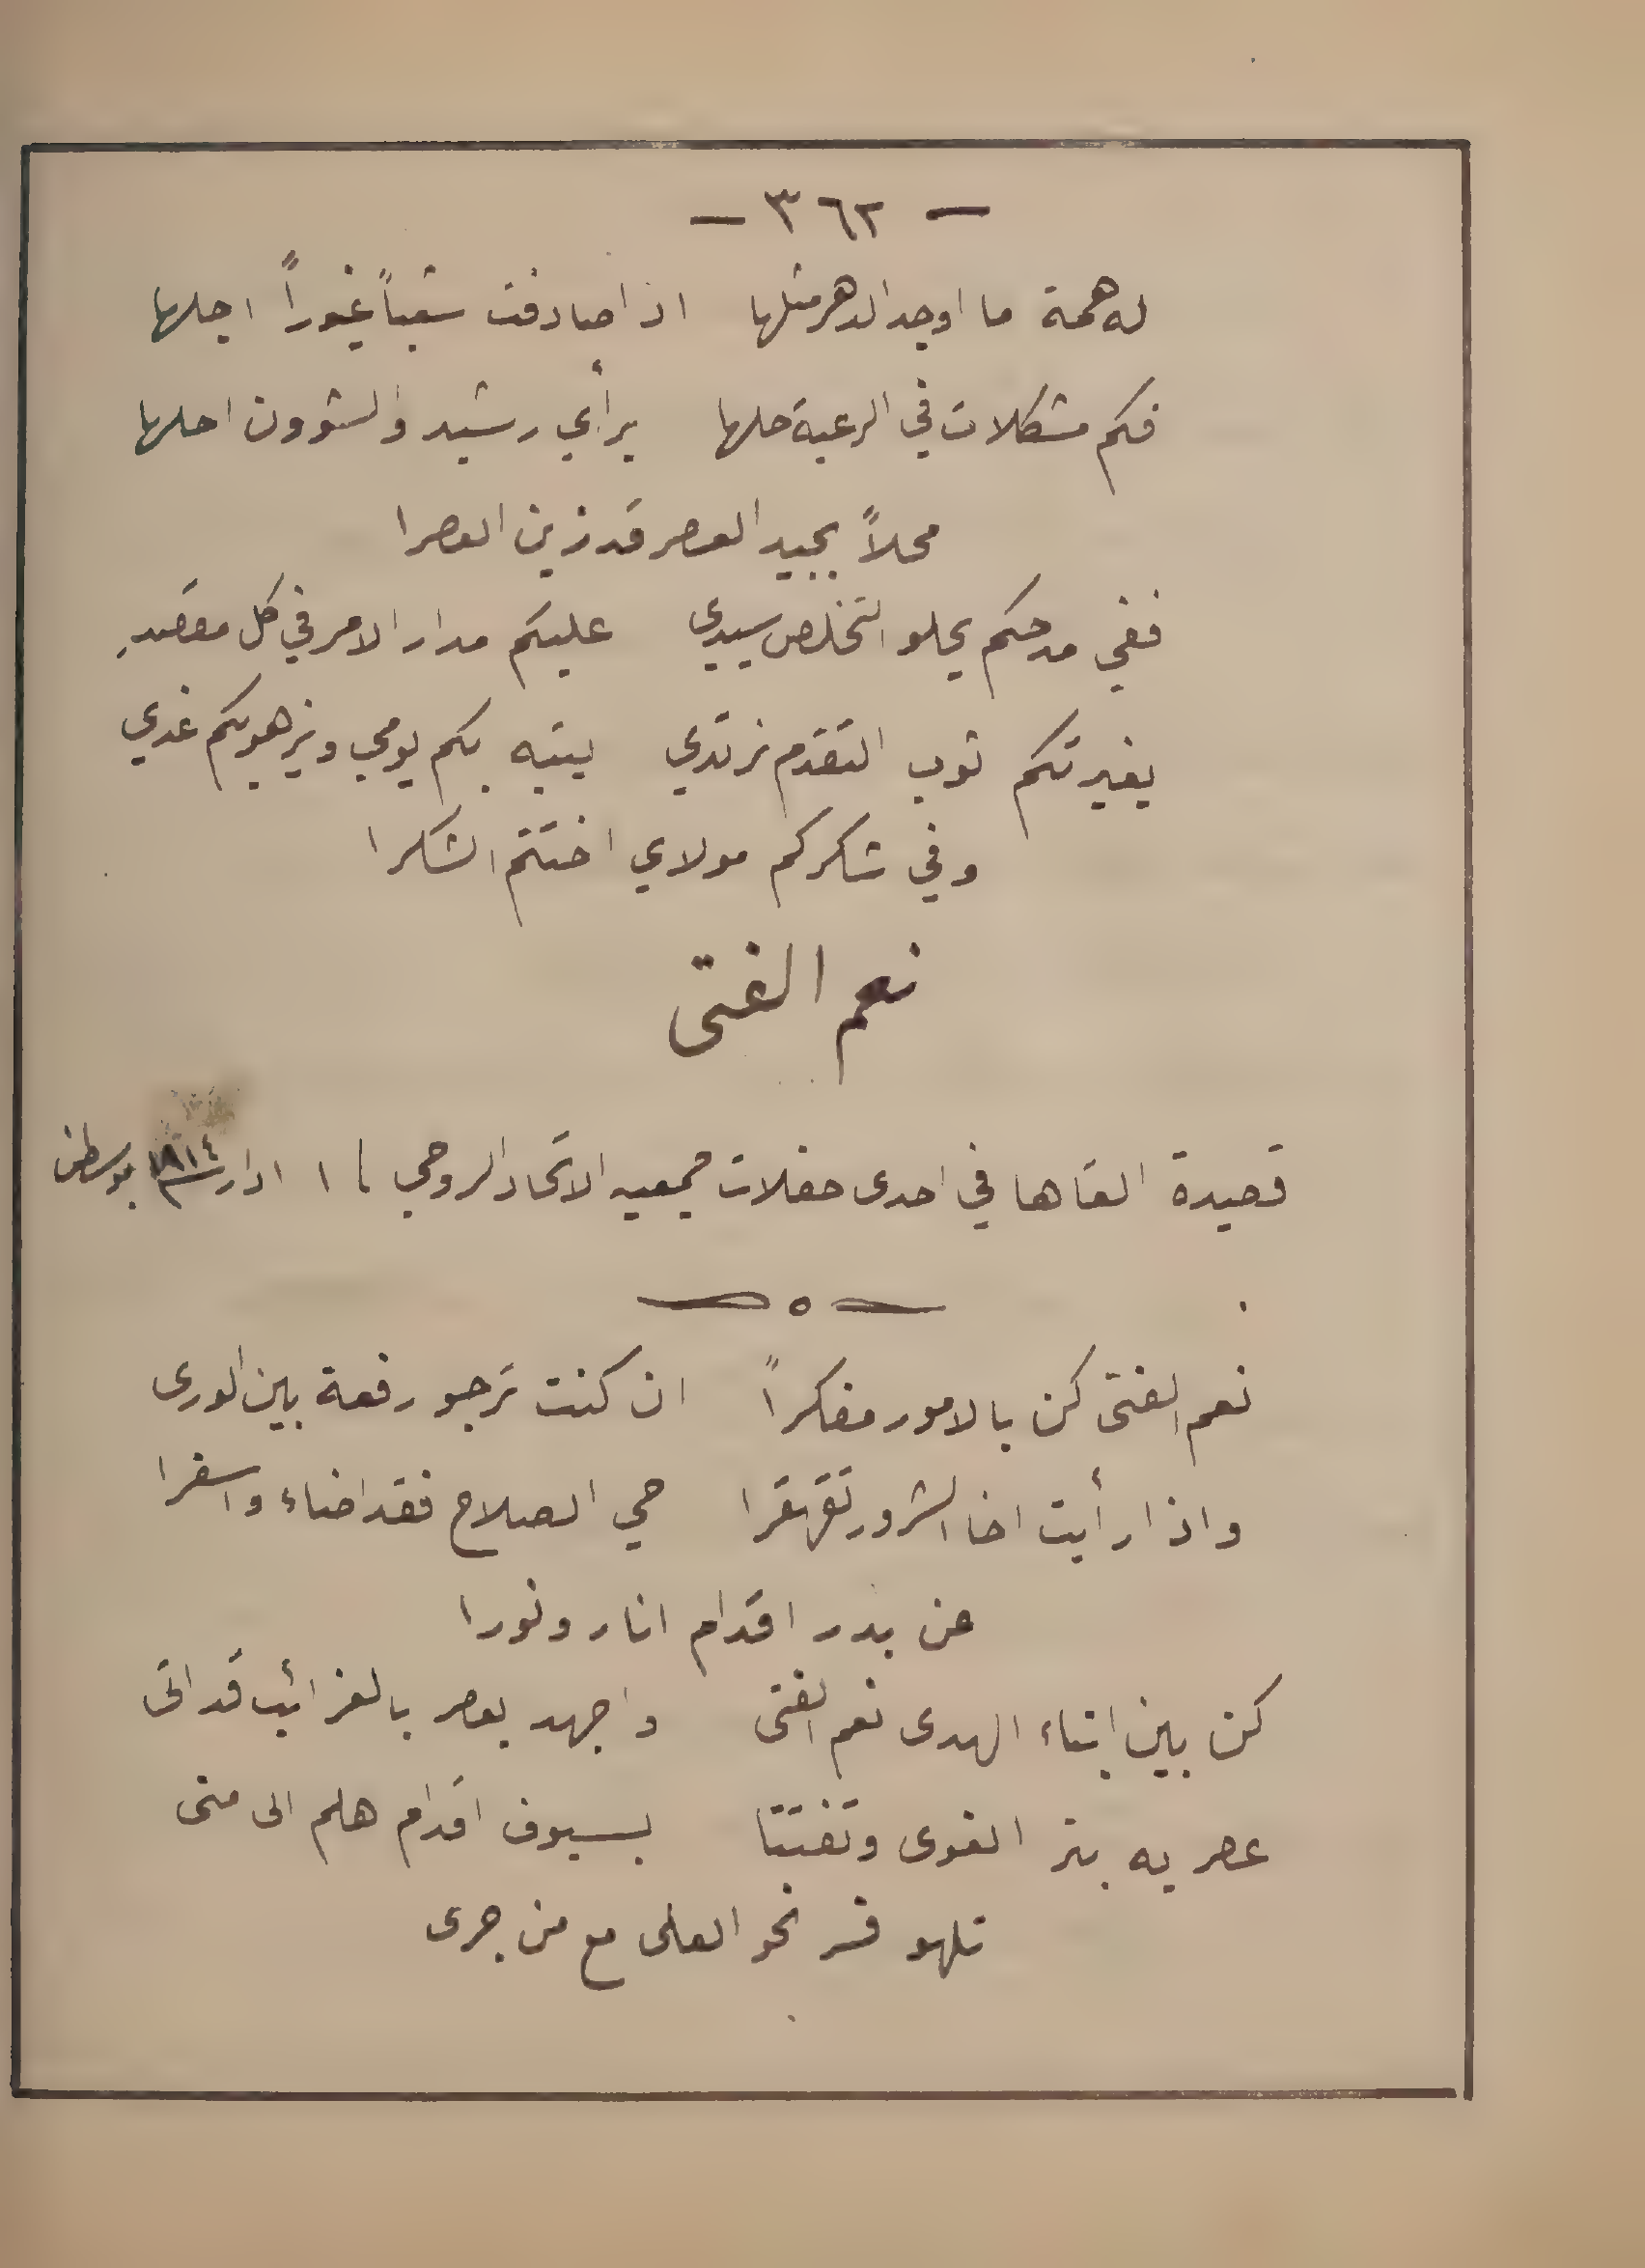 — ٣٦٢ —
له همة ما اوجد الدهر مثلها اذا صادفت شعباً غيوراً اجلها
فكم مشكلات في الرعية حلها برأي رشيد والشوون احلها
محلاً بجيد العصر قد زين العصرا
ففي مدحكم يحلو التخلص سيدي عليكم مدار الامر في كل مقصدِ
بغيرتكم ثوب التقدم نرتدي يتيه بكم يومي ويزهو بكم غدي
وفي شكركم مولاي اختتم الشكرا
نعم الفتى
قصيدة القاها في احدى حفلات جمعيه الاتحاد الروحي ادار ١٩١٤ بوسطن
نعم الفتى كن بالامور مفكراً ان كنت ترجو رفعة بين الورى
واذا رأيت اخا الشرور تقهقرا حي الصلاح فقد اضاء واسفرا
عن بدر اقدام انار ونورا
كن بين ابناء الهدى نعم الفتى واجهد بعصر بالغرائب قد اتى
عصر به بتر القوى وتفتتا بسيوف اقدام هلم الى متى
تلهو فسر نحو العلى مع من جرى